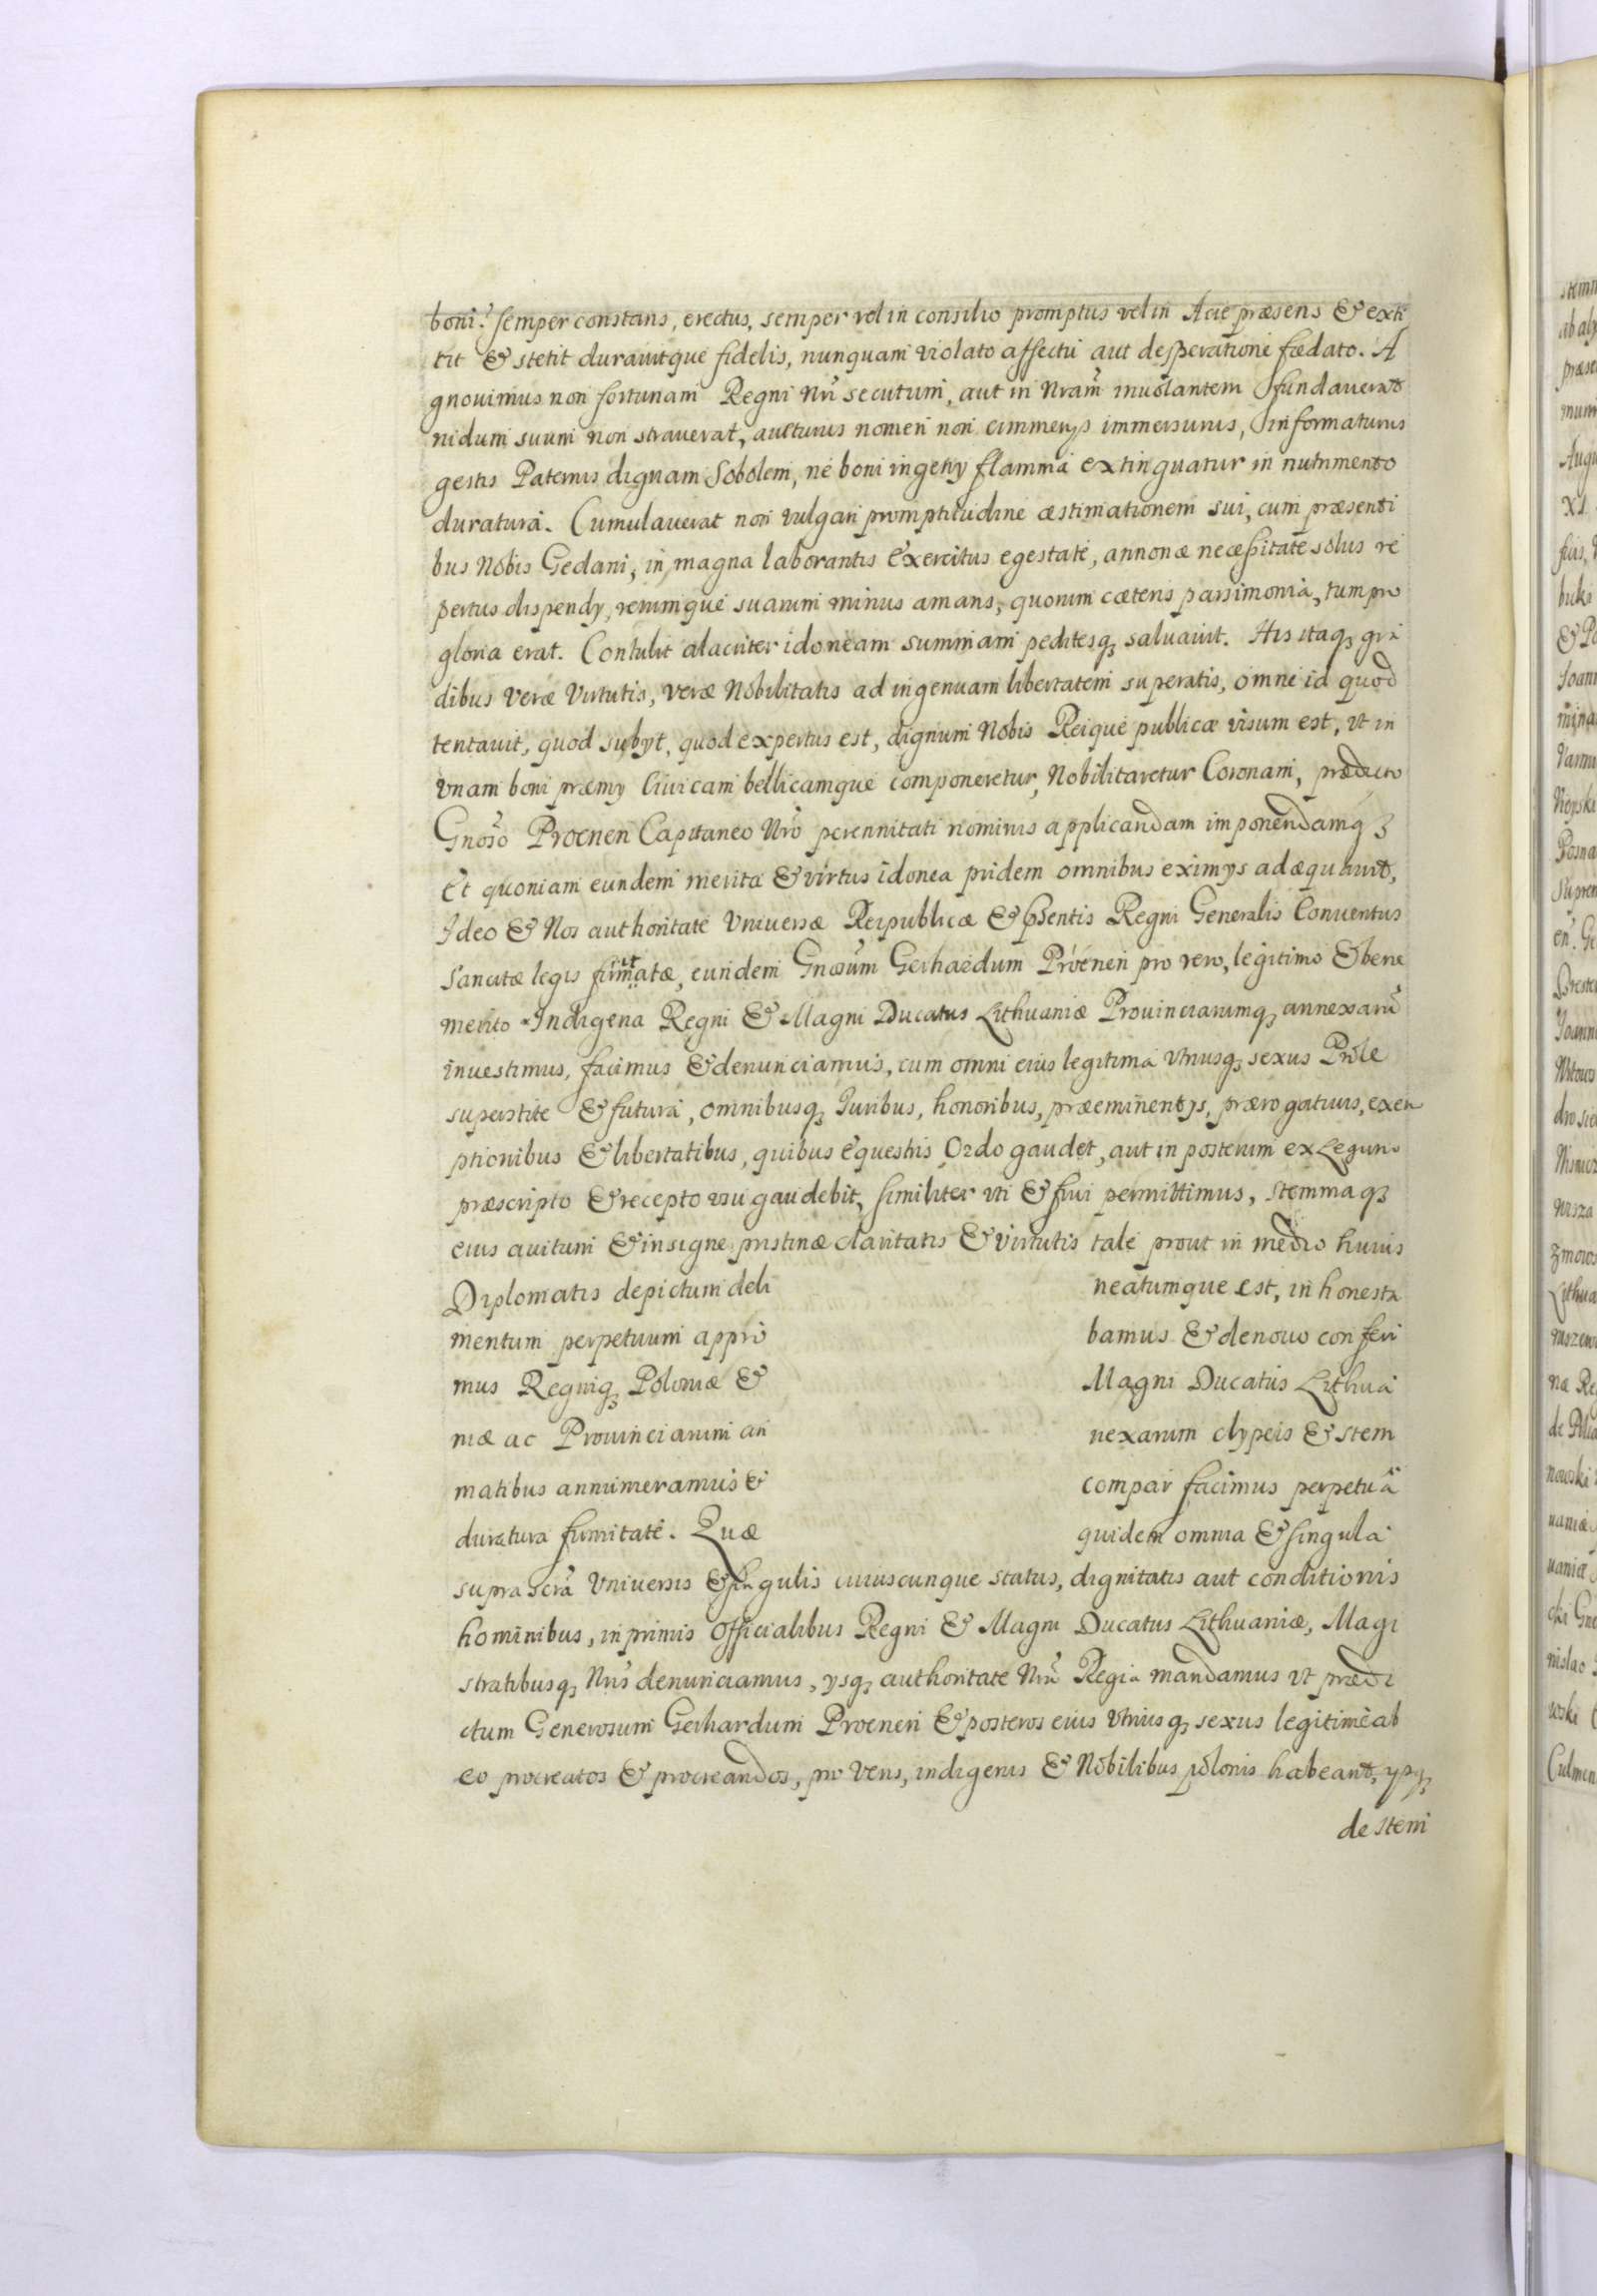 boni? semper constans, erectus, semper vel in consilio promptus vel in Acie præsens & exti
tit & stetit durauitque fidelis, nunquam violato affectu aut desperatione fœdato. A
gnouimus non fortunam Regni Nri secutum, aut in Nram inuolantem fundauerat
nidum suum non strauerat, aucturus nomen non cimmerys immersurus, informaturus
gestis Paternis dignam Sobolem, ne boni ingeny flamma extinguatur in nutrimento
duratura. Cumulauerat non vulgari promptitudine æstimationem sui, cum præsenti
bus Nobis Gedani, in magna laborantis Exercitus egestate, annonæ necessitate solus re
pertus dispendy, rerumque suarum minus amans, quorum cæteris parsimonia, tum pro
gloria erat. Contulit alacriter idoneam summam peditesq3 saluauit. His itaq3 gra
dibus veræ Virtutis, veræ Nobilitatis ad ingenuam libertatem superatis, omne id quod
tentauit, quod subyt, quod expertus est, dignum Nobis Reique publicæ visum est, vt in
vnam boni præmy Ciuicam bellicamque componeretur, Nobilitaretur Coronam, prædicto
Gnoso Proenen Capitaneo Nro perennitati nominis applicandam imponendamq3
Et quoniam eundem merita & virtus idonea pridem omnibus eximys adæquauit,
Ideo & Nos authoritate Vniversæ Reipublicæ & pntis Regni Generalis Conuentus
Sancitæ legis firmatæ, eundem Gnosum Gerhardum Proenen pro vero, legitimo & bene
merito Indigena Regni & Magni Ducatus Lithuaniæ Prouinciarumq3 annexarū
inuestimus, facimus & denunciamus, cum omni eius legitima vtriusq3 sexus Prole
superstite & futura, omnibusq3 Iuribus, honoribus, præeminentys, prærogatiuis, exem
ptionibus & libertatibus, quibus Equestris Ordo gaudet, aut in posterum ex Legum
præscripto & recepto vsu gaudebit, similiter vti & frui permittimus, stemmaq3
eius auitum & insigne pristinæ claritatis & virtutis tale prout in medio huius
Diplomatis depictum deli neatumque est, in honesta
mentum perpetuum appro bamus & denouo conferi
mus Regniq3 Poloniæ & Magni Ducatus Lithua
niæ ac Prouinciarum an nexarum clypeis & stem
matibus annumeramus & compar facimus perpetuā
duratura firmitate. Quæ quidem omnia & singula
suprascrā Vniversis & singulis cuiuscunque status, dignitatis aut conditionis
hominibus, inprimis Officialibus Regni & Magni Ducatus Lithuaniæ, Magi
stratibusq3 Nris denunciamus, ysq3 authoritate Nra Regia mandamus vt prædi
ctum Generosum Gerhardum Proenen & posteros eius vtriusq3 sexus legitime ab
eo procreatos & procreandos, pro veris, indigenis & Nobilibus polonis habeant, ysq3
de stem